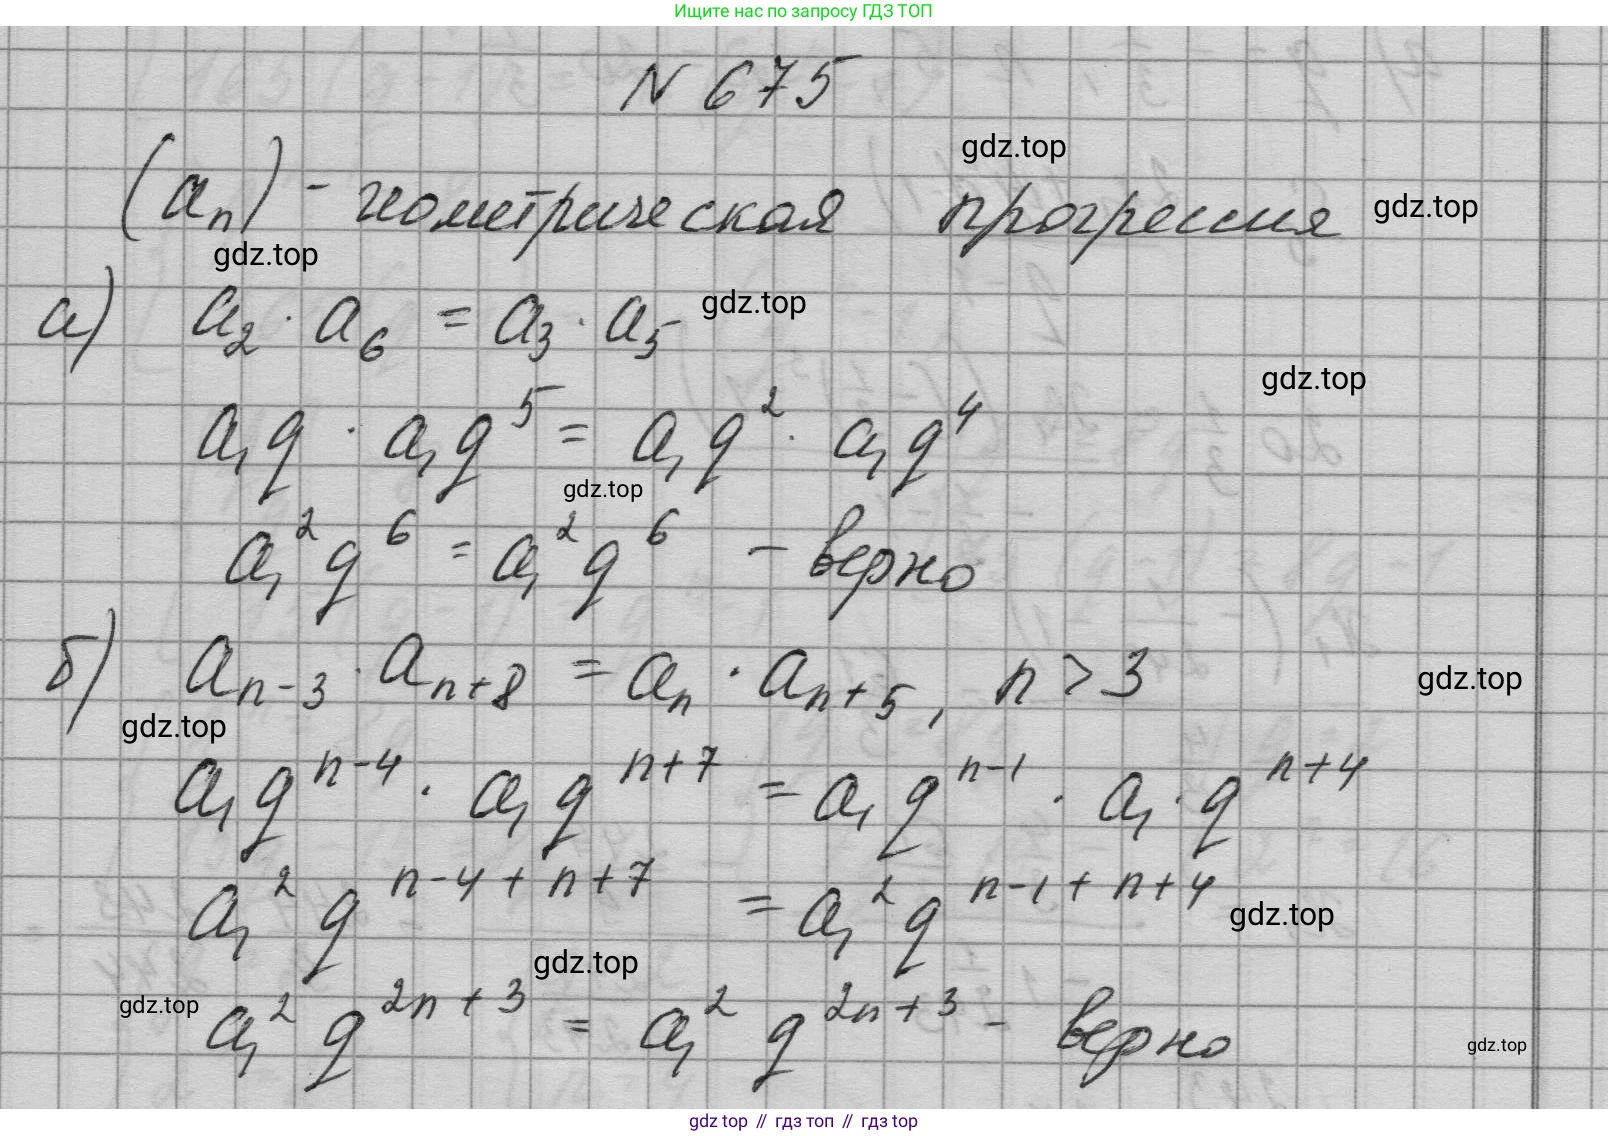 Ищите нас по запросу ГДЗ ТОП
N 675
gdz.top
(aₙ) - геометрическая прогрессия
gdz.top
gdz.top
а) a₂ · a₆ = a₃ · a₅
gdz.top
gdz.top
a₁q · a₁q⁵ = a₁q² · a₁q⁴
gdz.top
a₁²q⁶ = a₁²q⁶ – верно
б) aₙ₋₃ · aₙ₊₈ = aₙ · aₙ₊₅, n > 3
gdz.top
gdz.top
a₁qⁿ⁻⁴ · a₁qⁿ⁺⁷ = a₁qⁿ⁻¹ · a₁ · qⁿ⁺⁴
a₁²qⁿ⁻⁴⁺ⁿ⁺⁷ = a₁²qⁿ⁻¹⁺ⁿ⁺⁴
gdz.top
gdz.top
gdz.top
a₁²q²ⁿ⁺³ = a₁²q²ⁿ⁺³ – верно
gdz.top
gdz top // гдз топ // gdz top